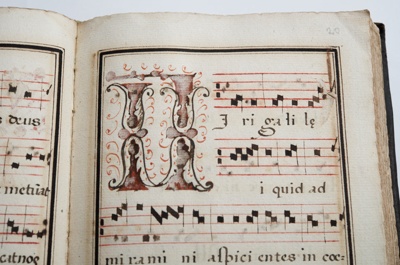 deus
metuat
I ri gali lę
i quid ad
mirami ni aspici entes in cœ-